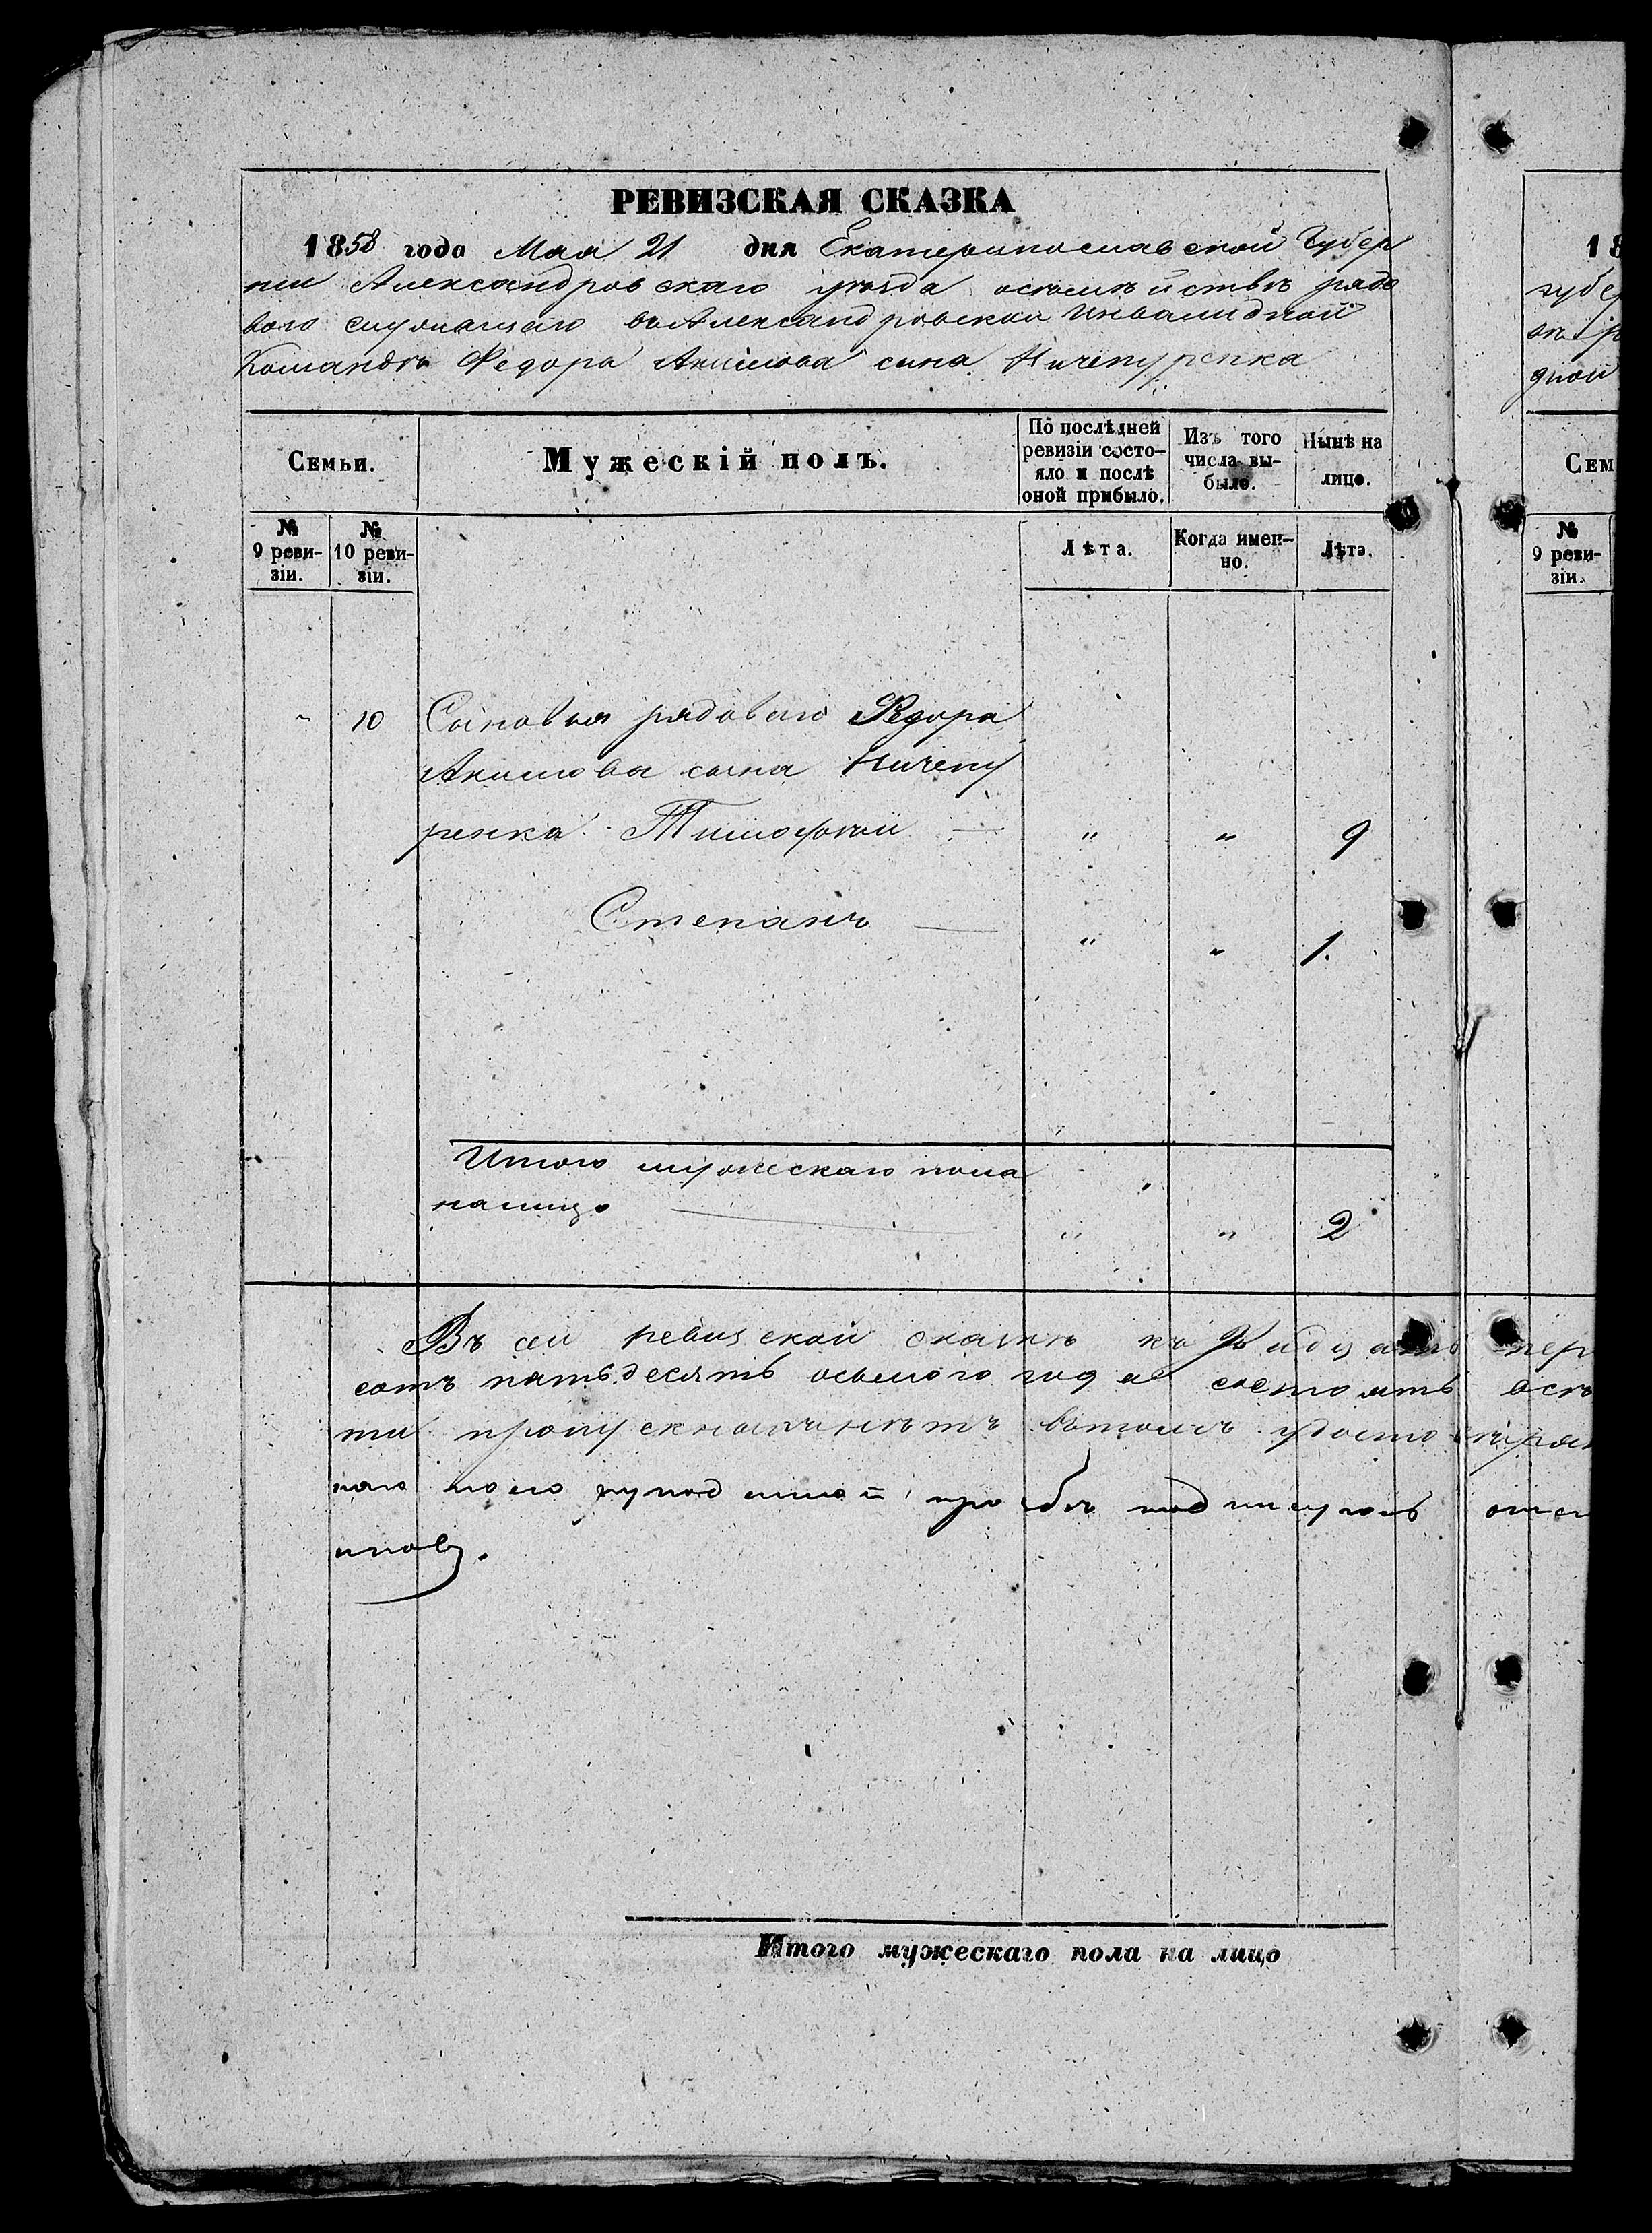 РЕВИЗСКАЯ СКАЗКА
1858 года Мая 21 дня Екатеринославской Губер
нии Александровскаго уѣзда осѣмействѣ рядо
ваго служащаго въ Александровской Инвалидной
Командѣ Федора Акимова сына Ничепуренка
Семьи.
Мужескій полъ.
По послѣдней ревизіи состо-
яло и послѣ оной прибыло.
Изъ того числа вы-
было.
Нынѣ на лицо.
№ 9 реви-
зіи.
№ 10 реви-
зіи.
Лѣта.
Когда имен-
но.
Лѣта.
" 10 Сыновья рядоваго Федора
Акимова сына Ничепу
ренка Тимофѣй — " " 9
Степанъ — " " 1.
Итого мужескаго пола
налицо — " " 2
Въ сей ревизской сказкѣ
сотъ пятьдесятъ осьмого года состоятъ
ти прописныхъ нѣтъ вътомъ удостовѣряю
подписуюсь
Итого мужескаго пола на лицо
18
губе
дной
Сем
№ 9 реви-
зіи.